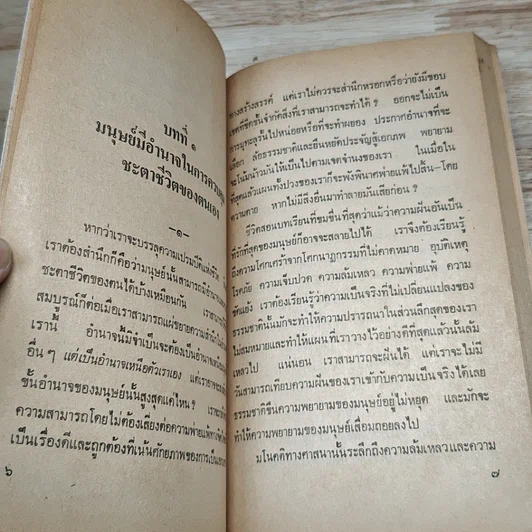 บทที่ ๑
มนุษย์มีอำนาจในการควบคุม
ชะตาชีวิตของตนเอง
–๑–
หากว่าเราจะบรรลุความเปรมปิติแห่งชีวิต
เราต้องสำนึกก็คือว่ามนุษย์นั้นสามารถ
ชะตาชีวิตของตนได้บ้างเหมือนกัน
สมบูรณ์ก็ต่อเมื่อเราสามารถแผ่ขยายความสำนึก
เรานี้ อำนาจนี้มิจำเป็นจะต้องเป็นอำนาจเหนือ
อื่นๆ แต่เป็นอำนาจเหนือตัวเราเอง
ชั้นอำนาจของมนุษย์นั้นสูงสุดแค่ไหน ?
ความสามารถโดยไม่ต้องเสี่ยงต่อความพ่ายแพ้
เป็นเรื่องดีและถูกต้องที่เน้นศักยภาพของการเป็น
๖
ทางสร้างสรรค์ แต่เราไม่ควรจะสำนึกหรอกหรือว่ายังมีขอบ
เขตที่ขีดขั้นจำกัดสิ่งที่เราสามารถจะทำได้ ? ออกจะไม่เป็น
การมุทะลุวู่วามไปหน่อยหรือที่จะทำผยอง ประกาศอำนาจที่จะ
เลือก ล้อธรรมชาติและยืนหยัดประจัญสู้เอกภพ พยายาม
จะโน้มน้าวมันให้เป็นไปตามเจตจำนงของเรา ในเมื่อใน
ที่สุดแล้วแผนทั้งปวงของเราก็จะพังพินาศพ่ายแพ้ไปสิ้น–โดย
ความตาย หากไม่มีสิ่งอื่นมาทำลายมันเสียก่อน ?
ชีวิตสอนบทเรียนที่ขมขื่นที่สุดว่าแม้ว่าความฝันอันเป็น
ที่รักที่สุดของมนุษย์ก็อาจจะสลายไปได้ เราจึงต้องเรียนรู้
ถึงความโศกเศร้าจากโศกนาฏกรรมที่ไม่คาดหมาย อุบัติเหตุ
โรคภัย ความเจ็บปวด ความล้มเหลว ความพ่ายแพ้ ความ
ขัดแย้ง เราต้องเรียนรู้ว่ามีความเป็นจริงที่ไม่เปลี่ยนแปลงของ
ธรรมชาตินั้นมักจะทำให้ความปรารถนาในส่วนลึกสุดของเรา
ไม่สมหมายและทำให้แผนที่เราวางไว้อย่างดีที่สุดแล้วนั้นล้ม
เหลวไป แน่นอน เราสามารถจะฝันได้ แต่เราจะไม่มี
วันสามารถเทียบความฝันของเราเข้ากับความเป็นจริงได้เลย
ธรรมชาติขืนความพยายามของมนุษย์อยู่ไม่หยุด และมักจะ
ทำให้ความพยายามของมนุษย์เสื่อมถอยลงไป
มโนคติทางศาสนานั้นระลึกถึงความล้มเหลวและความ
๗